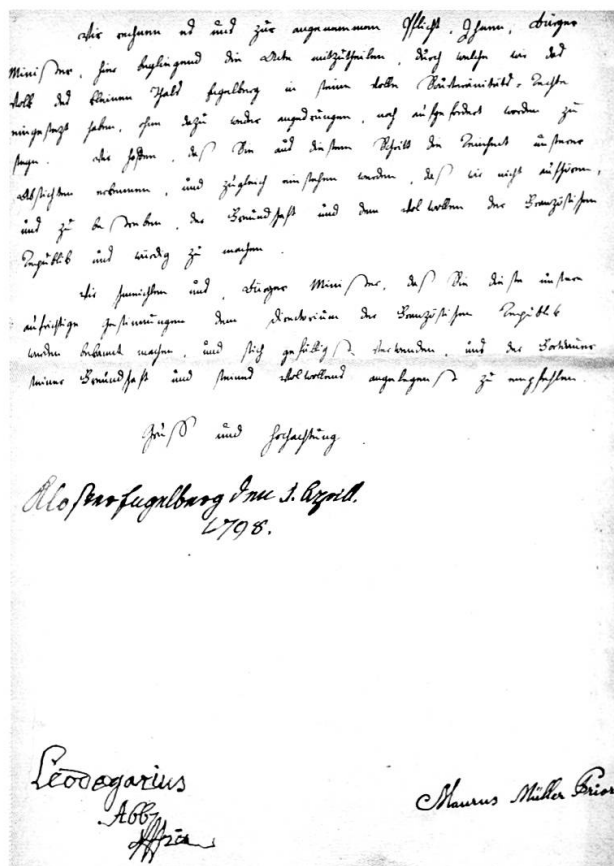 Wir rechnen es uns zur angenemmen Pflicht, Ihnen, Bürger
Minister, hier beyliegend die Acte mitzutheilen, durch welche wir das
Volk des kleinen Thals Engelberg in seine volle Souveränitäts-Rechte
eingesezt haben, ohne dazu weder angedrungen, noch aufgefordert worden zu
seyn. Wir hoffen, daß Sie aus diesem Schritt die Reinheit unserer
Absichten erkennen, und zugleich einsehen werden, daß wir nicht aufhören,
uns zu bestreben, der Freundschaft und dem Wolwollen der Französischen
Republik uns würdig zu machen.
Wir schmeichlen uns, Bürger Minister, daß Sie diese unsere
aufrichtige Gesinnungen dem Directorium der Französischen Republik
werden bekannt machen, und sich gefälligst verwenden, uns der Fortdauer
seiner Freundschaft und seines Wolwollens angelegenst zu empfehlen.
Gruß und Hochachtung
Kloster Engelberg den 3. Aprill.
1798.
Leodegarius
Abb
Maurus Müller Prior